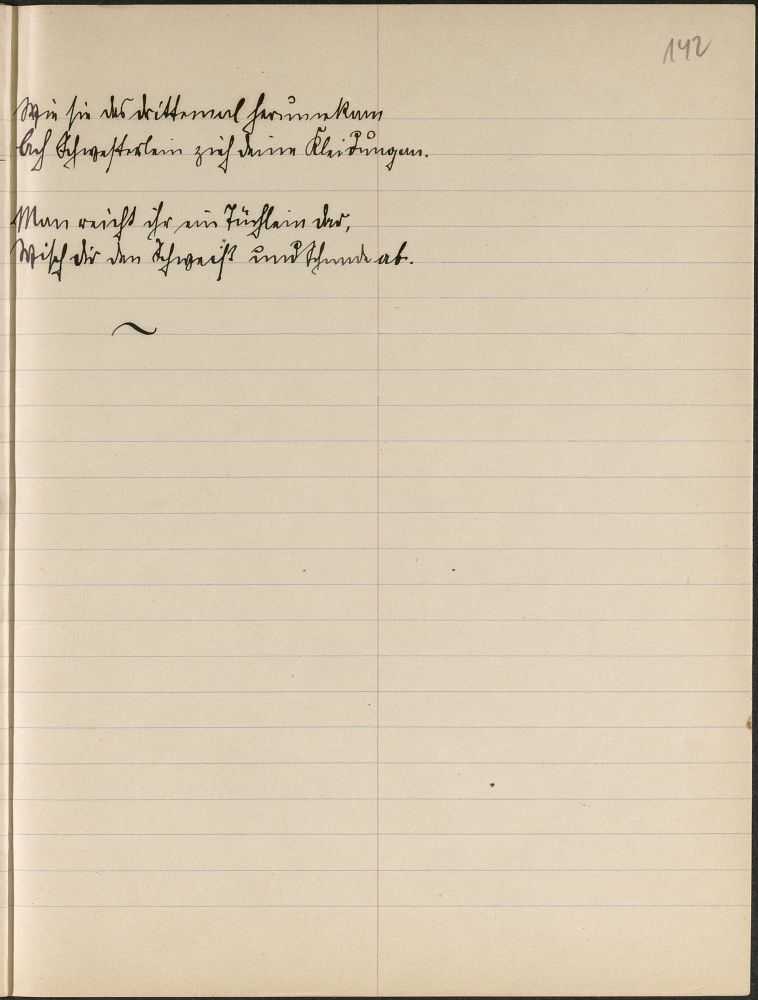 142
Wie sie das drittemal herumme kam
Ach Schwesterlein zieh deine Kleidung an.
Man reicht ihr ein Tüchlein dar,
Wisch dir den Schweiß und Schande ab.